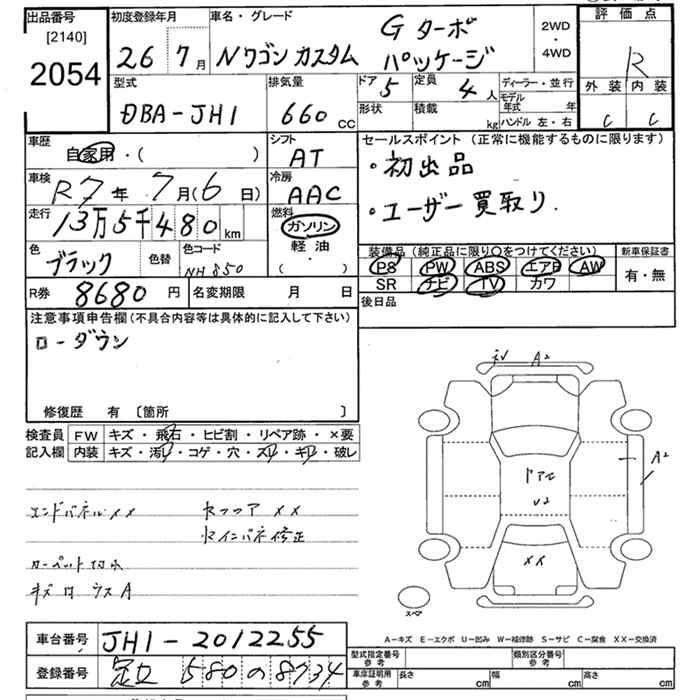 出品番号 [2140] 2054
初度登録年月 26 7月
車名・グレード Nワゴン カスタム G ターボ パッケージ
2WD・4WD
評価点 R
外装 C 内装 C
型式 DBA-JH1
排気量 660 cc
ドア 5 定員 4 人
形状 積載 kg
ディーラー・並行
モデル年式 年
ハンドル 左・右
車歴 自家用・( )
シフト AT
車検 R7年 7月(6日)
冷房 AAC
走行 13万5千480 km
燃料 ガソリン 軽油 ( ・ )
色 ブラック 色替 色コード NH850
セールスポイント (正常に機能するものに限ります)
・初出品
・ユーザー買取り.
装備品 (純正品に限り○をつけてください) 新車保証書
PS PW ABS エアB AW 有・無
SR ナビ TV カワ
後日品
R券 8680 円 名変期限 月 日
注意事項申告欄(不具合内容等は具体的に記入して下さい)
ローダウン
修復歴 有 〔箇所 〕
検査員 FW キズ・飛石・ヒビ割・リペア跡・×要
記入欄 内装 キズ・汚れ・コゲ・穴・スレ・キレ・破レ
エンドパネルXX
カーペット
A2
A2
ドア
U2
XX
スペア
A-キズ E-エクボ U-凹み W-補修跡 S-サビ C-腐食 XX-交換済
車台番号 JH1-2012255
登録番号 足立 580 の 8734
型式指定番号 参考 類別区分番号 参考
車庫証明用 参考 長さ cm 幅 cm 高さ cm